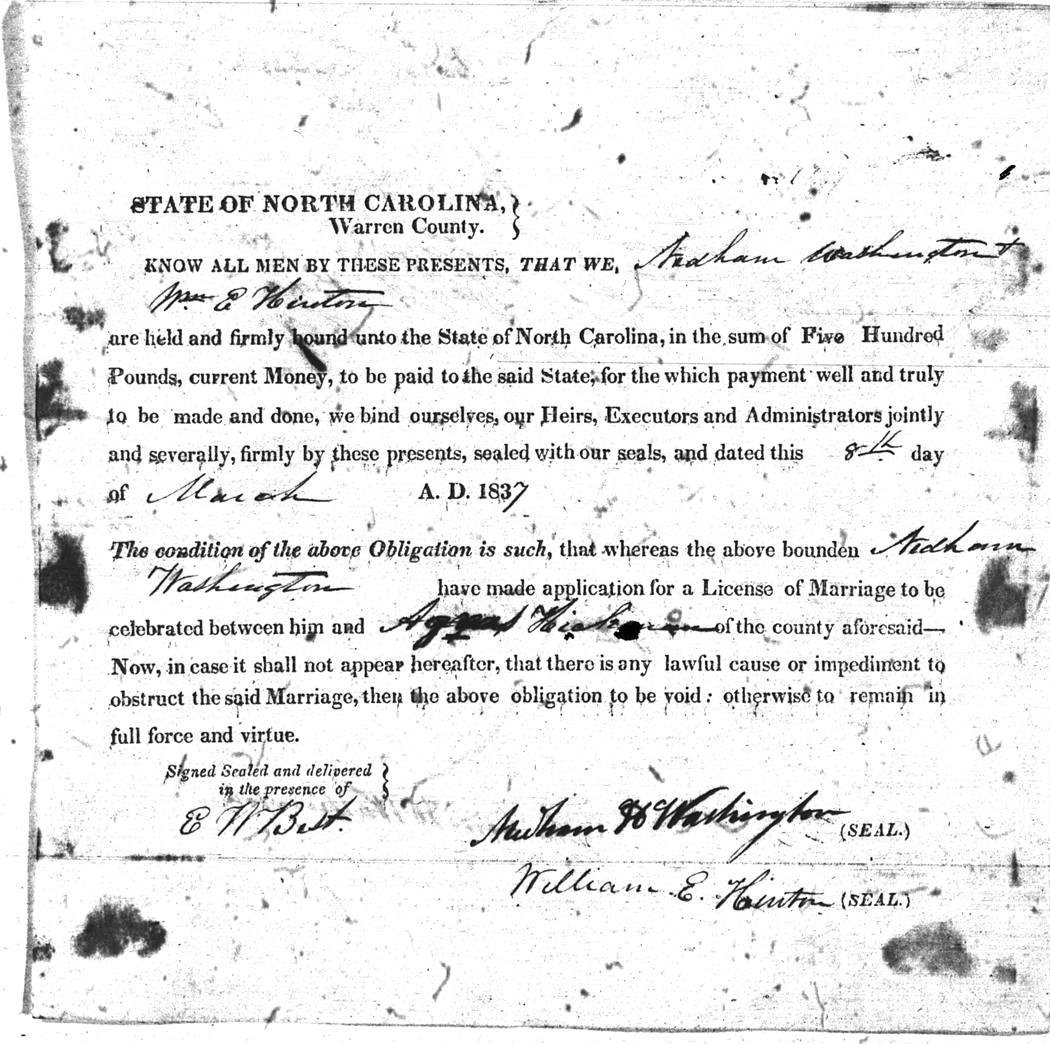 STATE OF NORTH CAROLINA,
Warren County.
KNOW ALL MEN BY THESE PRESENTS, THAT WE, Nedham Washington &
Wm E Hinton
are held and firmly bound unto the State of North Carolina, in the sum of Five Hundred
Pounds, current Money, to be paid to the said State, for the which payment well and truly
to be made and done, we bind ourselves, our Heirs, Executors and Administrators jointly
and severally, firmly by these presents, sealed with our seals, and dated this 8th day
of March A. D. 1837
The condition of the above Obligation is such, that whereas the above bounden Nedham
Washington have made application for a License of Marriage to be
celebrated between him and of the county aforesaid—
Now, in case it shall not appear hereafter, that there is any lawful cause or impediment to
obstruct the said Marriage, then the above obligation to be void: otherwise to remain in
full force and virtue.
Signed Sealed and delivered
in the presence of
E W Best.
Needham H Washington (SEAL.)
William E. Hinton (SEAL.)